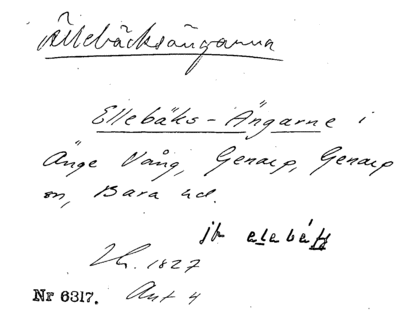 Ällebäcksängarna
Ellebäks-Ängarne i
Änge Vång, Genarp, Genarp
sn, Bara hd.
jfr
1827
Nr 6317. Akt 4